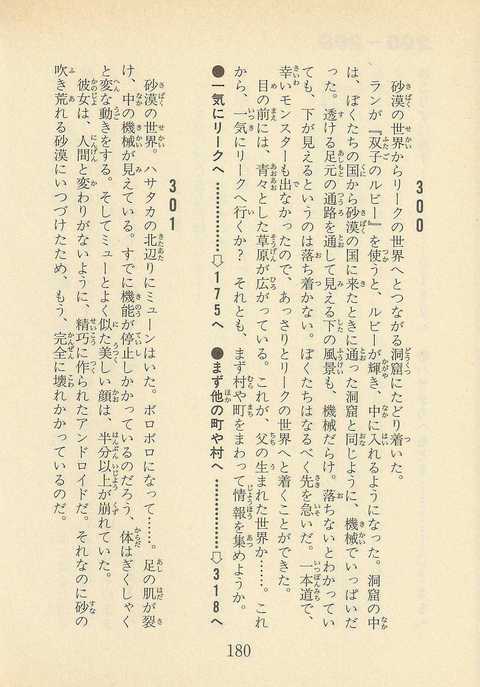 300
砂漠の世界からリークの世界へとつながる洞窟にたどり着いた。
ランが『双子のルビー』を使うと、ルビーが輝き、中に入れるようになった。洞窟の中
は、ぼくたちの国から砂漠の国に来たときに通った洞窟と同じように、機械でいっぱいだ
った。透ける足元の通路を通して見える下の風景も、機械だらけ。落ちないとわかってい
ても、下が見えるというのは落ち着かない。ぼくたちはなるべく先を急いだ。一本道で、
幸いモンスターも出なかったので、あっさりとリークの世界へと着くことができた。
目の前には、青々とした草原が広がっている。これが、父の生まれた世界か……。これ
から、一気にリークへ行くか？　それとも、まず村や町をまわって情報を集めようか。
●一気にリークへ…………⇨175へ　●まず他の町や村へ…………⇨318へ
301
砂漠の世界。ハサタカの北辺りにミューンはいた。ボロボロになって……。足の肌が裂
け、中の機械が見えている。すでに機能が停止しかかっているのだろう、体はぎくしゃく
と変な動きをする。そしてミューとよく似た美しい顔は、半分以上が崩れていた。
彼女は、人間と変わりがないように、精巧に作られたアンドロイドだ。それなのに砂の
吹き荒れる砂漠にいつづけたため、もう、完全に壊れかかっているのだ。
180